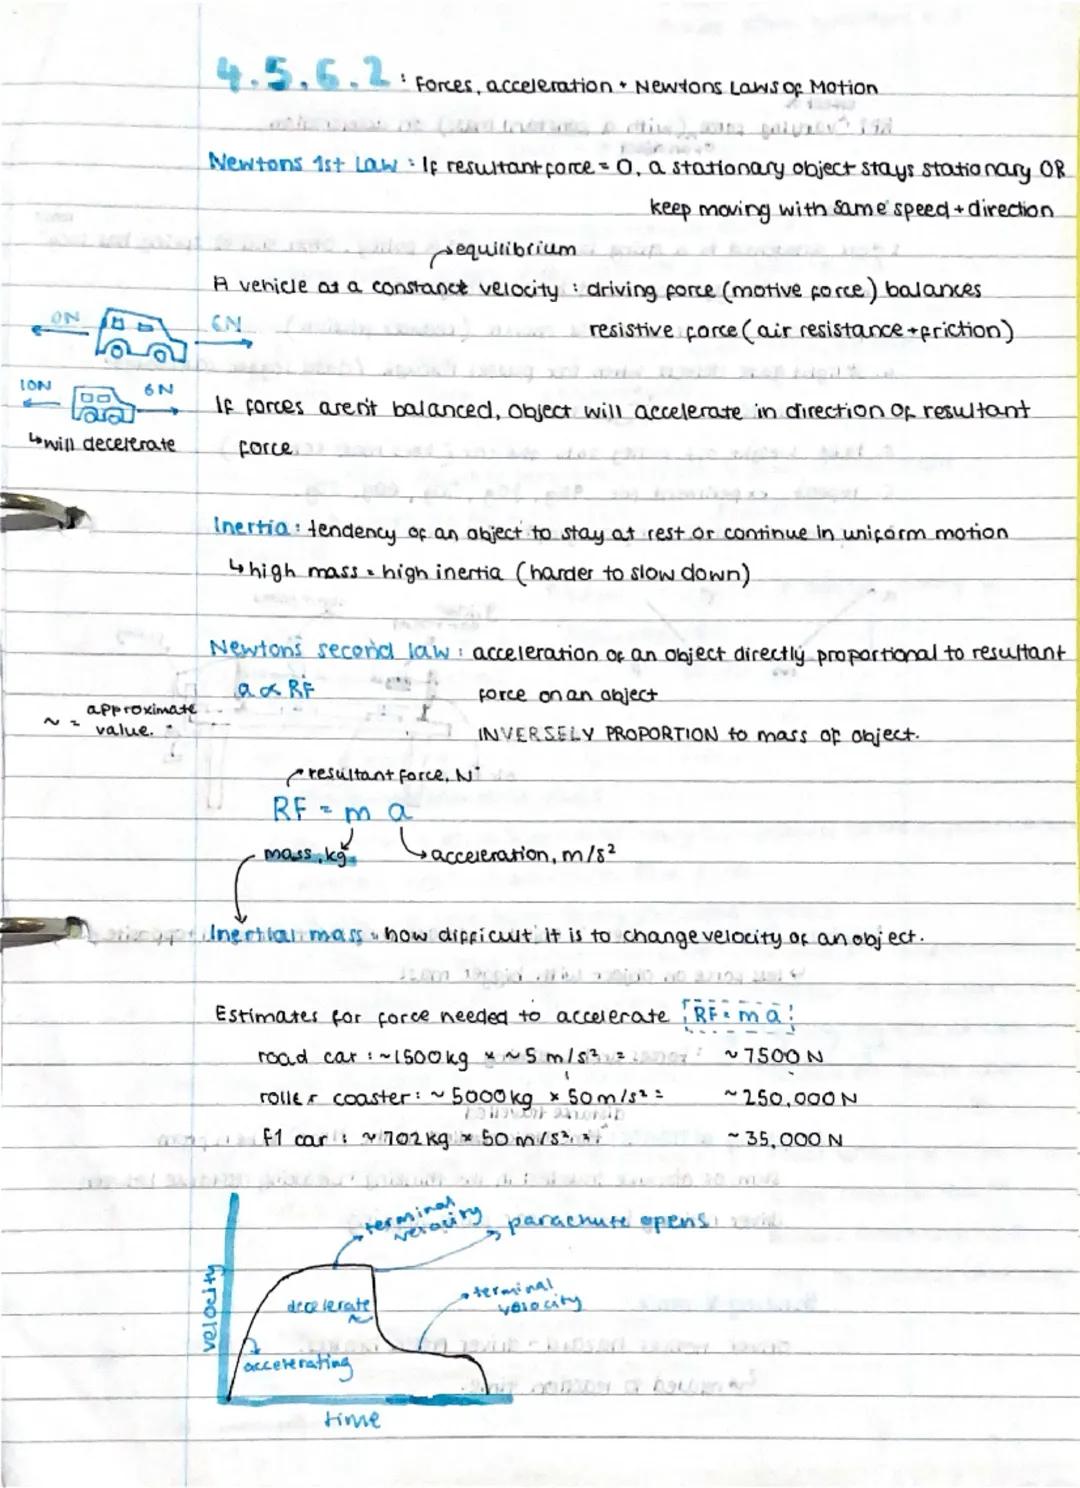 4.5.6.2 : Forces, acceleration + Newtons Laws of Motion
Newtons 1st Law : If resultant force = 0, a stationary object stays stationary OR
keep moving with same speed + direction
equilibrium
A vehicle at a constant velocity : driving force (motive force) balances
resistive force (air resistance + friction)
6N
10N 6N
If forces aren't balanced, object will accelerate in direction of resultant
↳ will decelerate
force
Inertia : tendency of an object to stay at rest or continue in uniform motion
↳ high mass = high inertia (harder to slow down)
Newton's second law : acceleration of an object directly proportional to resultant
a ∝ RF
force on an object
~ = approximate
value.
INVERSELY PROPORTION to mass of object.
resultant force, N
RF = m a
mass, kg
acceleration, m/s²
Inertial mass = how difficult it is to change velocity of an object.
Estimates for force needed to accelerate RF = m a
road car : ~1500kg × ~5 m/s² = ~7500 N
roller coaster : ~5000kg × 50m/s² = ~250,000 N
F1 car : ~702kg × 50 m/s² = ~35,000 N
terminal
velocity
parachute opens
velocity
decelerate
terminal
velocity
accelerating
time